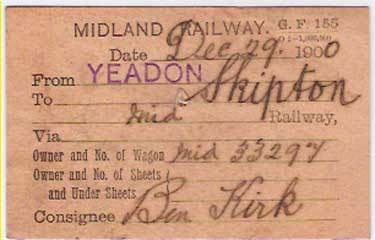 MIDLAND RAILWAY. G. F. 155
Date Dec 29. 1900
From YEADON
To Skipton
Mid Railway,
Via
Owner and No. of Wagon Mid 33297
Owner and No. of Sheets
and Under Sheets
Consignee Ben Kirk